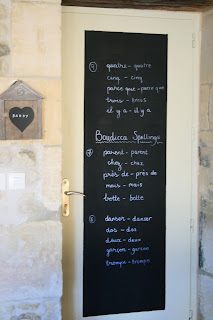 quatre - quatre
cinq - cinq
parce que - parce que
trois - trois
il y a - il y a
Boudicca Spellings
parent - parent
chez - chez
près de - près de
mais - mais
botte - botte
danser - danser
dos - dos
doux - doux
garçon - garçon
trompe - trompe